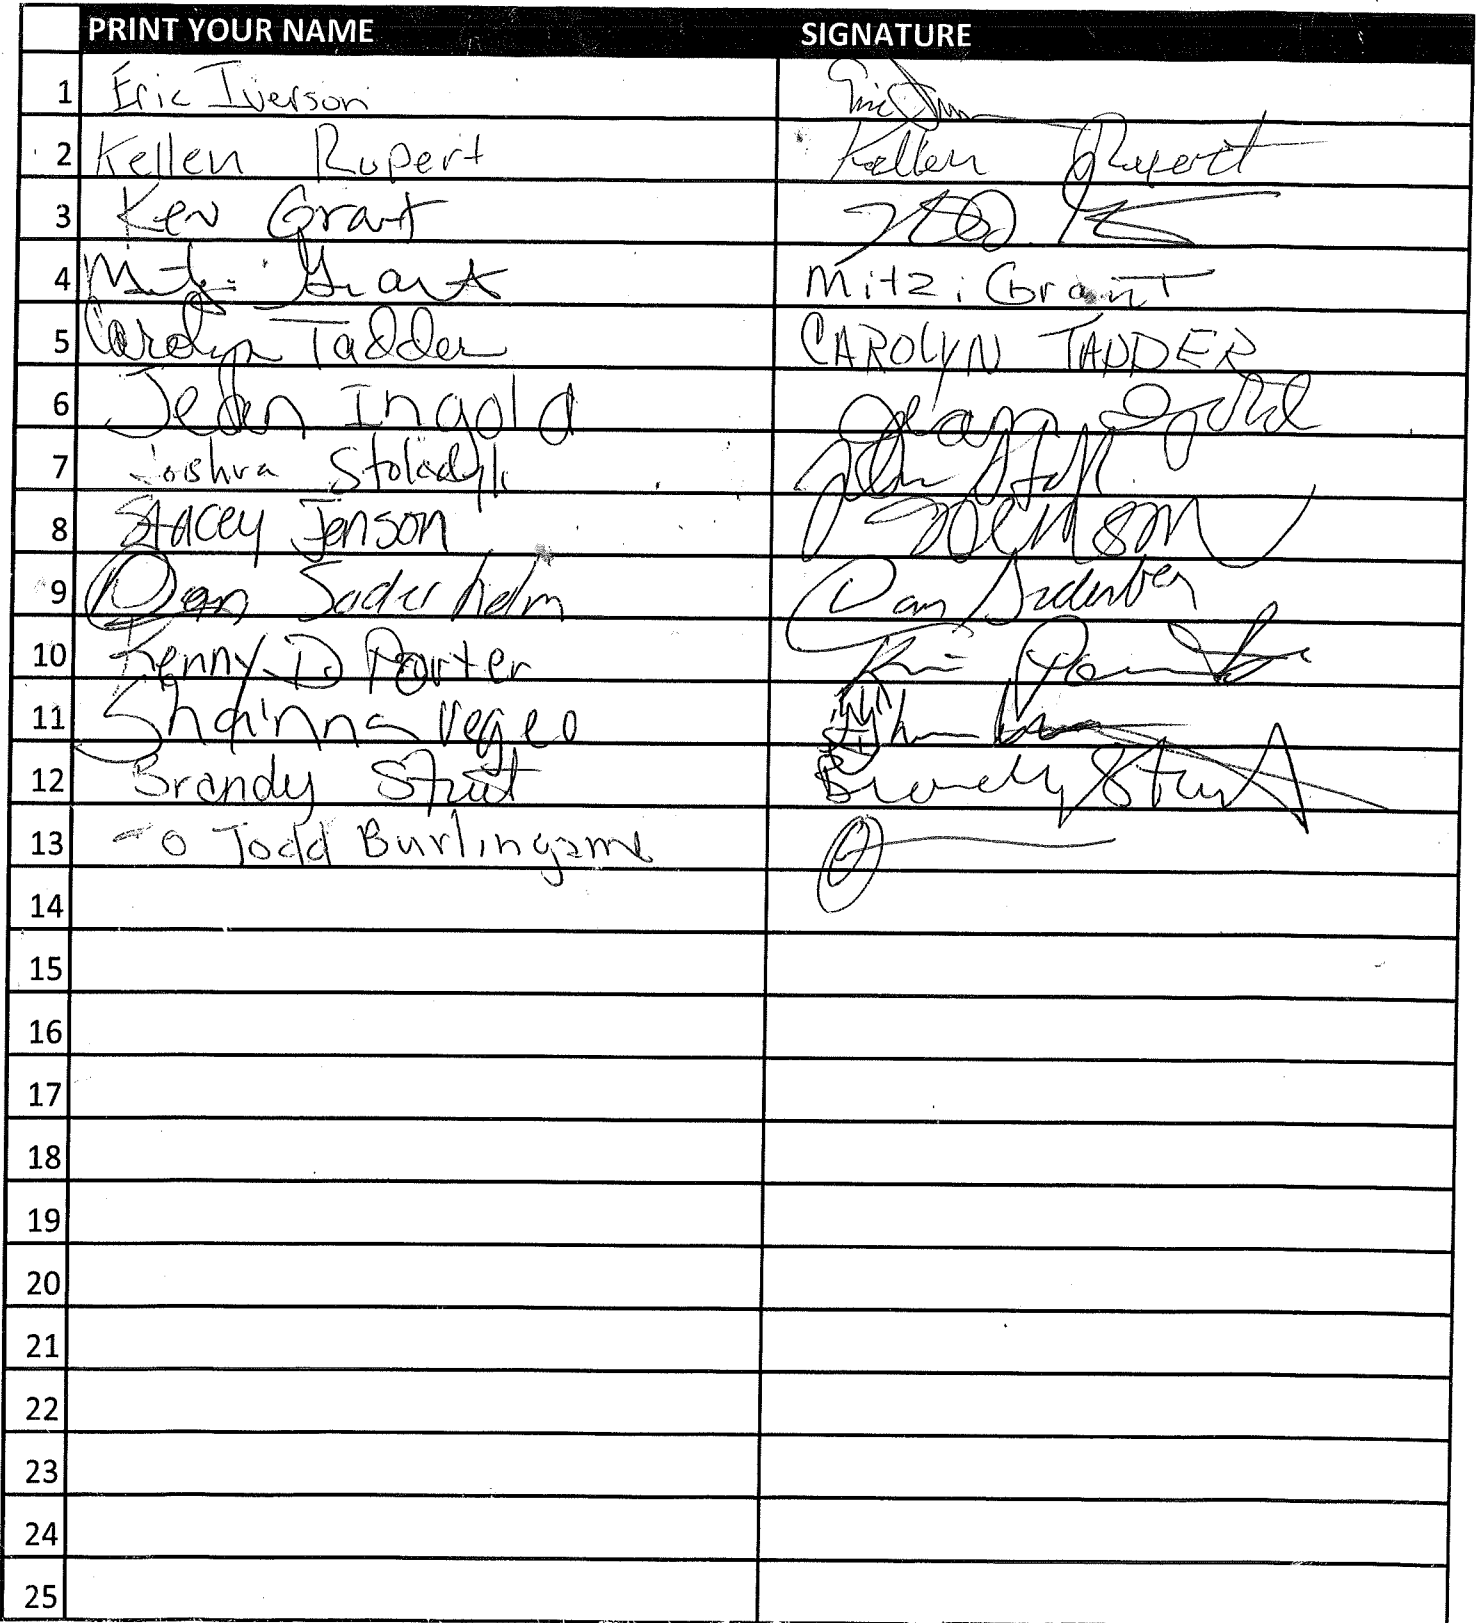 PRINT YOUR NAME SIGNATURE
1 Eric Iverson
2 Kellen Rupert Kellen Rupert
3 Ken Grant
4 Mitzi Grant Mitzi Grant
5 Carolyn Tadder CAROLYN TADDER
6 Jean Ingold Jean Ingold
7 Joshua
8 Stacey Jenson Jenson
9 Dan Soderholm Dan
10 Kenny D Porter
11 Shainna
12 Brandy Brandy
13 Todd Burlingame
14
15
16
17
18
19
20
21
22
23
24
25